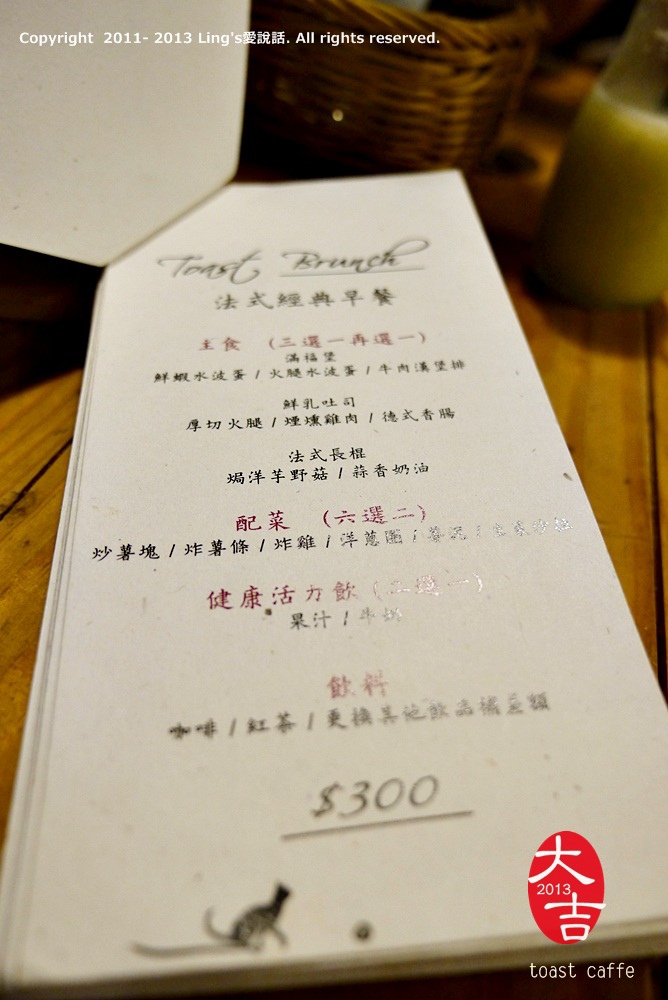 Copyright 2011- 2013 Ling's愛說話. All rights reserved.
Toast Brunch
法式經典早餐
主食 (三選一再選一)
滿福堡
鮮蝦水波蛋 / 火腿水波蛋 / 牛肉漢堡排
鮮乳吐司
厚切火腿 / 煙燻雞肉 / 德式香腸
法式長棍
焗洋芋野菇 / 蒜香奶油
配菜 (六選二)
炒薯塊 / 炸薯條 / 炸雞 / 洋蔥圈 / 薯泥 /
健康活力飲 (二選一)
果汁 / 牛奶
飲料
咖啡 / 紅茶 / 更換其他飲品補差額
$300
大吉
2013
toast caffe